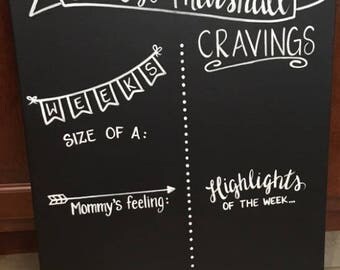 Marshall
CRAVINGS
WEEKS
SIZE OF A:
Mommy's feeling:
Highlights
OF THE WEEK...